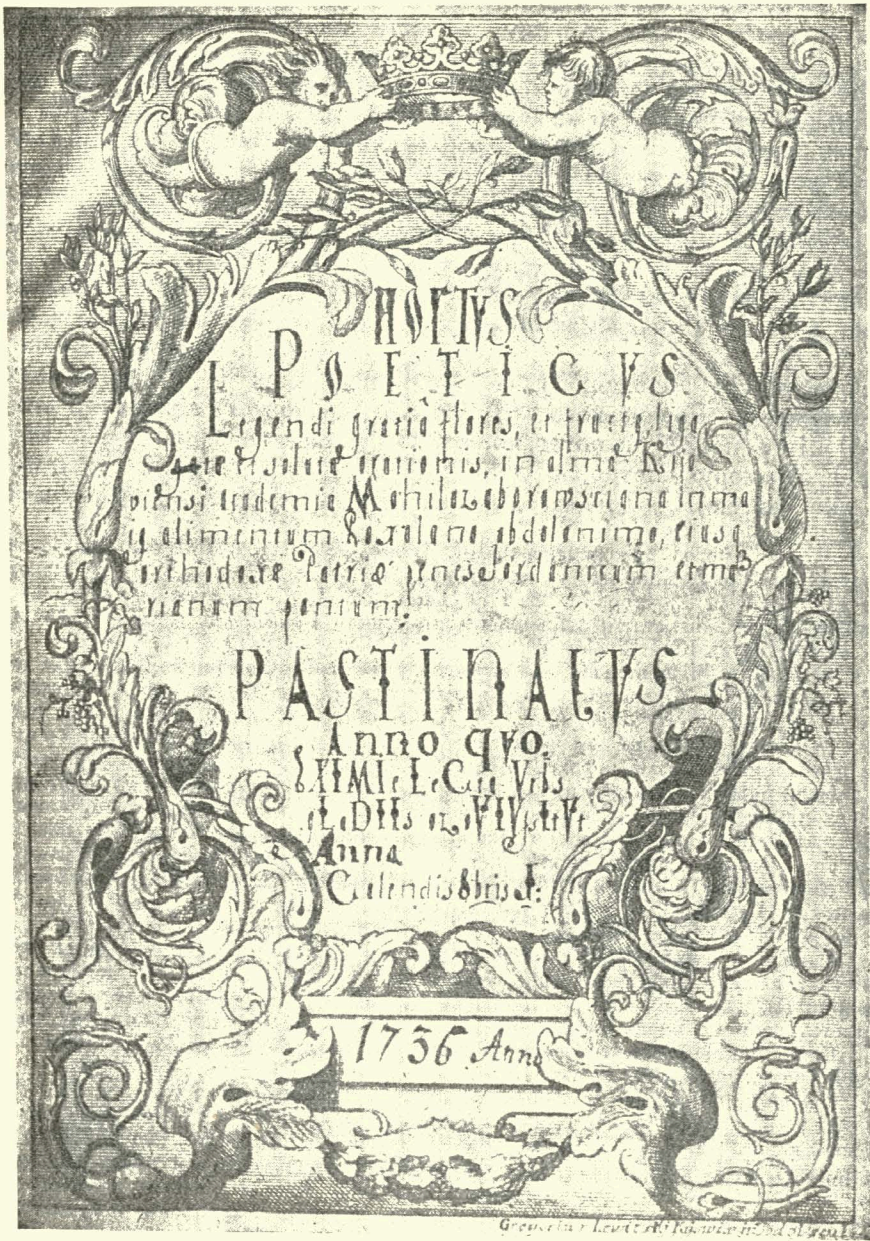 HORTVS
POETICVS
Legendi gratiâ flores, et fructg liga
tæ et solutæ orationis, in almâ Kijo
viensi academia Mohilozaborowsciana in ma
alimentum Roxolano abdolonimo, eiusq
orthodoxæ Patriæ penes Iordanicum et ma
rianum pontum
PASTINATVS
Anno qvo
Anna
Calendis 8bris
1736 Anno
Gregorius